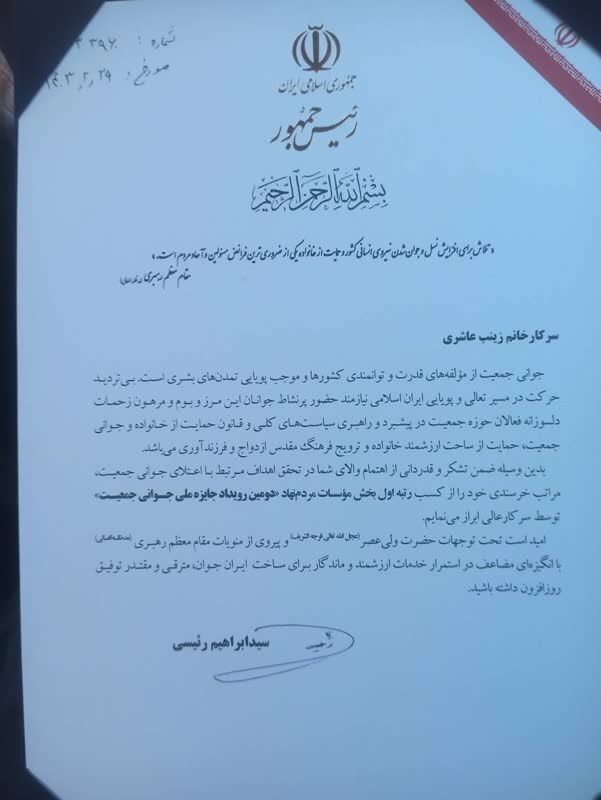 شماره :
مورخ : ۱۴۰۳٫۲٫۲۹
جمهوری اسلامی ایران
رئیس جمهور
بسم الله الرحمن الرحیم
« تلاش برای افزایش نسل و جوان شدن نیروی انسانی کشور و حمایت از خانواده یکی از ضروری ترین فرائض مسئولین و آحاد مردم است. »
مقام معظم رهبری
سرکار خانم زینب عاشری
جوانی جمعیت از مؤلفه‌های قدرت و توانمندی کشورها و موجب پویایی تمدن‌های بشری است. بی‌تردید
حرکت در مسیر تعالی و پویایی ایران اسلامی نیازمند حضور پرنشاط جوانان این مرز و بوم و مرهون زحمات
دلسوزانه فعالان حوزه جمعیت در پیشبرد و راهبری سیاست‌های کلی و قانون حمایت از خانواده و جوانی
جمعیت، حمایت از ساحت ارزشمند خانواده و ترویج فرهنگ مقدس ازدواج و فرزندآوری می‌باشد.
بدین وسیله ضمن تشکر و قدردانی از اهتمام والای شما در تحقق اهداف مرتبط با اعتلای جوانی جمعیت،
مراتب خرسندی خود را از کسب رتبه اول بخش مؤسسات مردم‌نهاد «دومین رویداد جایزه ملی جوانی جمعیت»
توسط سرکارعالی ابراز می‌نمایم.
امید است تحت توجهات حضرت ولی‌عصر (عجل الله تعالی فرجه الشریف) و پیروی از منویات مقام معظم رهبری (مدظله‌العالی)
با انگیزه‌ای مضاعف در استمرار خدمات ارزشمند و ماندگار برای ساخت ایران جوان، مترقی و مقتدر توفیق
روزافزون داشته باشید.
سیدابراهیم رئیسی